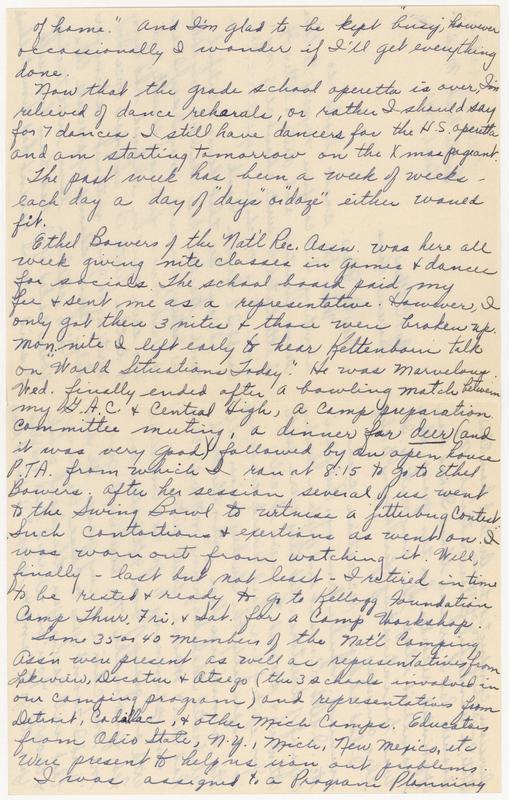 of home." And I'm glad to be kept "busy," however
occassionally I wonder if I'll get everything
done.
Now that the grade school operetta is over, I'm
relieved of dance rehersals, or rather I should say
for 7 dances. I still have dancers for the H.S. operetta
and am starting tomorrow on the Xmas pageant.
The past week has been a week of weeks -
each day a day of "days" or "daze" either would
fit.
Ethel Bowers of the Nat'l Rec. Assn. was here all
week giving nite classes in games & dances
for socials. The school board paid my
fee & sent me as a representative. However, I
only got there 3 nites & those were broken up.
Mon. nite I left early to hear Keltenborn talk
on "World Situations Today." He was marvelous.
Wed. finally ended after a bowling match between
my G.A.C. & Central High, a camp preparation
committee meeting, a dinner for deer (and
it was very good) followed by an open house
P.T.A. from which I ran at 8:15 to go to Ethel
Bowers. After her session several of us went
to the Swing Bowl to witness a jitterbug contest.
Such contortions & exertions as went on. I
was worn out from watching it. Well,
finally - last but not least - I retired in time
to be rested & ready to go to Kellogg Foundation
Camp Thur, Fri, & Sat. for a Camp Workshop.
Some 35 or 40 members of the Nat'l Camping
Ass'n were present as well as representatives from
Lakeview, Decatur & Otsego (the 3 schools involved in
our camping program) and representatives from
Detroit, Cadillac, & other Mich Camps. Educators
from Ohio State, N.Y., Mich, New Mexico, etc
were present to help us iron out problems.
I was assigned to a Program Planning